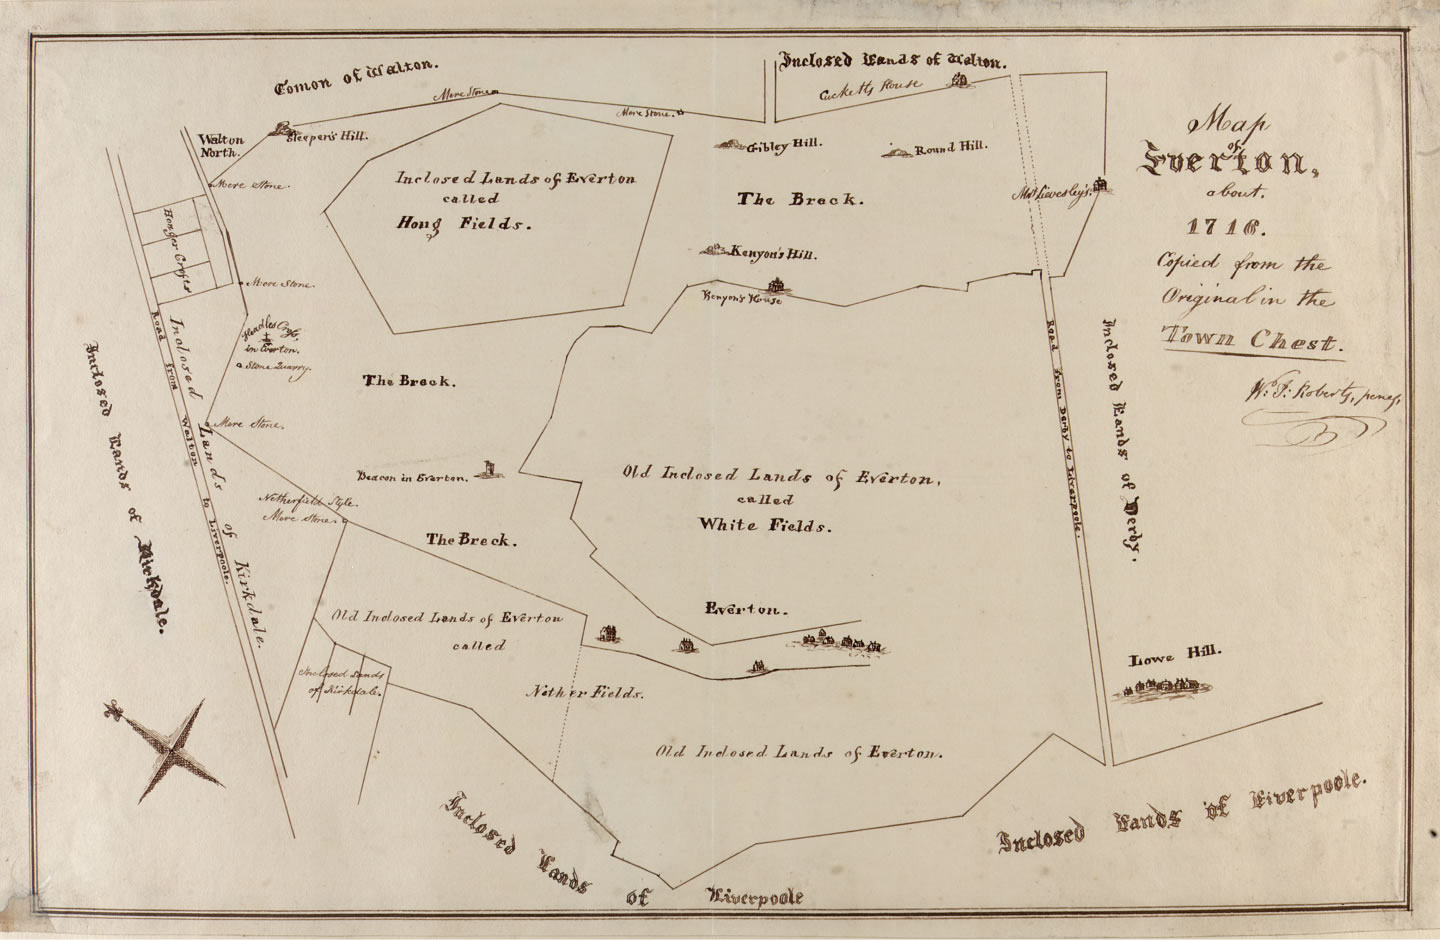 Comon of Walton.
Inclosed Lands of Walton.
Mere Stone
Mere Stone.
House
Walton
North.
Sleeper's Hill.
Gibley Hill.
Round Hill.
Map
of
Everton,
about.
1716.
Copied from the
Original in the
Town Chest.
W. J. Roberts,
Inclosed Lands of Everton
called
Hong Fields.
Mere Stone.
The Breck.
Mrs Lievesley's.
Honger Crofts
Kenyon's Hill.
Kenyon's House
Mere Stone.
Headles Cross,
in Everton.
Stone Quarry.
The Breck.
Mere Stone.
Inclosed Lands of Kirkdale.
Road from Walton to Liverpoole.
Inclosed Lands of Kirkdale.
Road from Derby to Liverpoole.
Inclosed Lands of Derby.
Beacon in Everton.
Old Inclosed Lands of Everton,
called
White Fields.
Netherfield Style.
Mere Stone.
The Breck.
Everton.
Old Inclosed Lands of Everton
called
Nether Fields.
Inclosed Lands
of Kirkdale.
Lowe Hill.
Old Inclosed Lands of Everton.
Inclosed Lands of Liverpoole
Inclosed Lands of Liverpoole.